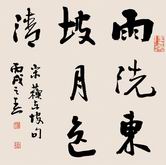 雨洗東
坡月色
清
宋蘇东坡句
丙戌之春